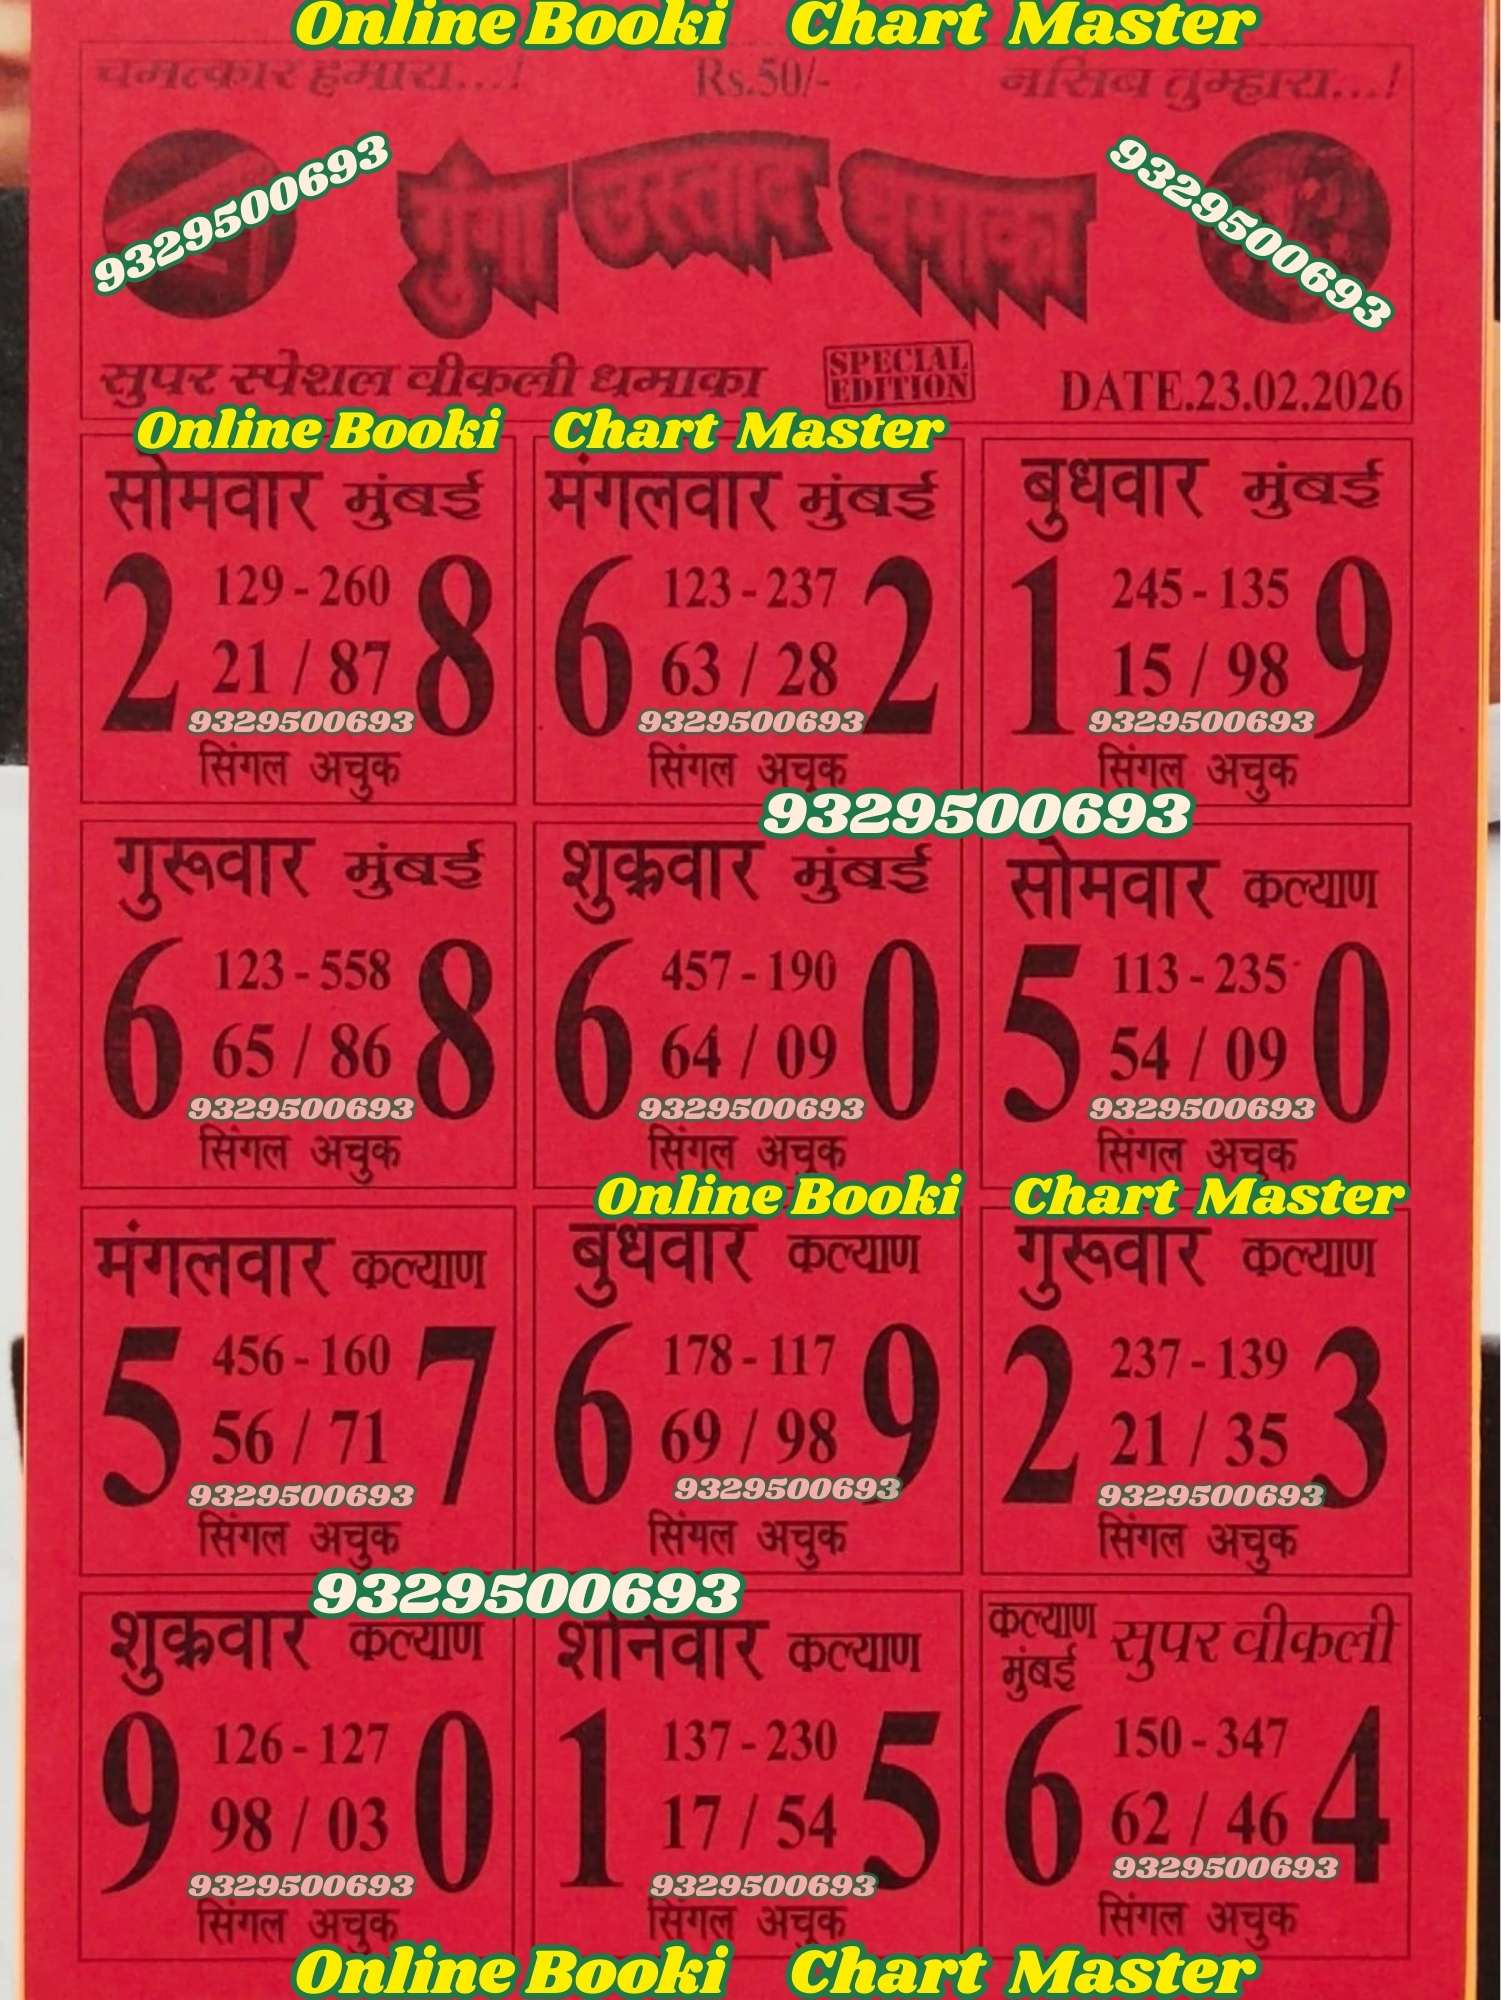 Online Booki Chart Master
चमत्कार हमारा...! Rs.50/- नसिब तुम्हारा...!
9329500693 9329500693
उस्ताद धमाका
सुपर स्पेशल वीकली धमाका SPECIAL EDITION DATE.23.02.2026
Online Booki Chart Master
सोमवार मुंबई
129-260
2 8
21 / 87
9329500693
सिंगल अचुक
मंगलवार मुंबई
123-237
6 2
63 / 28
9329500693
सिंगल अचुक
बुधवार मुंबई
245-135
1 9
15 / 98
9329500693
सिंगल अचुक
9329500693
गुरूवार मुंबई
123-558
6 8
65 / 86
9329500693
सिंगल अचुक
शुक्रवार मुंबई
457-190
6 0
64 / 09
9329500693
सिंगल अचुक
सोमवार कल्याण
113-235
5 0
54 / 09
9329500693
सिंगल अचुक
Online Booki Chart Master
मंगलवार कल्याण
456-160
5 7
56 / 71
9329500693
सिंगल अचुक
बुधवार कल्याण
178-117
6 9
69 / 98
9329500693
सिंगल अचुक
गुरूवार कल्याण
237-139
2 3
21 / 35
9329500693
सिंगल अचुक
9329500693
शुक्रवार कल्याण
126-127
9 0
98 / 03
9329500693
सिंगल अचुक
शनिवार कल्याण
137-230
1 5
17 / 54
9329500693
सिंगल अचुक
कल्याण मुंबई सुपर वीकली
150-347
6 4
62 / 46
9329500693
सिंगल अचुक
Online Booki Chart Master